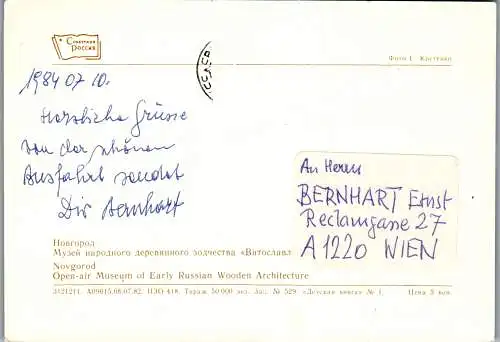 Советская
Россия
Фото Г. Костенко
СССР
1984 07 10.
Herzliche Grüsse
von der schönen
Ausfahrt sendet
Dir Bernhart
An Herrn
BERNHART Ernst
Reclamgasse 27
A1220 WIEN
Новгород
Музей народного деревянного зодчества «Витославл
Novgorod
Open-air Museum of Early Russian Wooden Architecture
3121211. А09615.08.07.82. ИЗО 418. Тираж 50 000 экз. Зак. № 529. «Детская книга» № 1. Цена 3 коп.